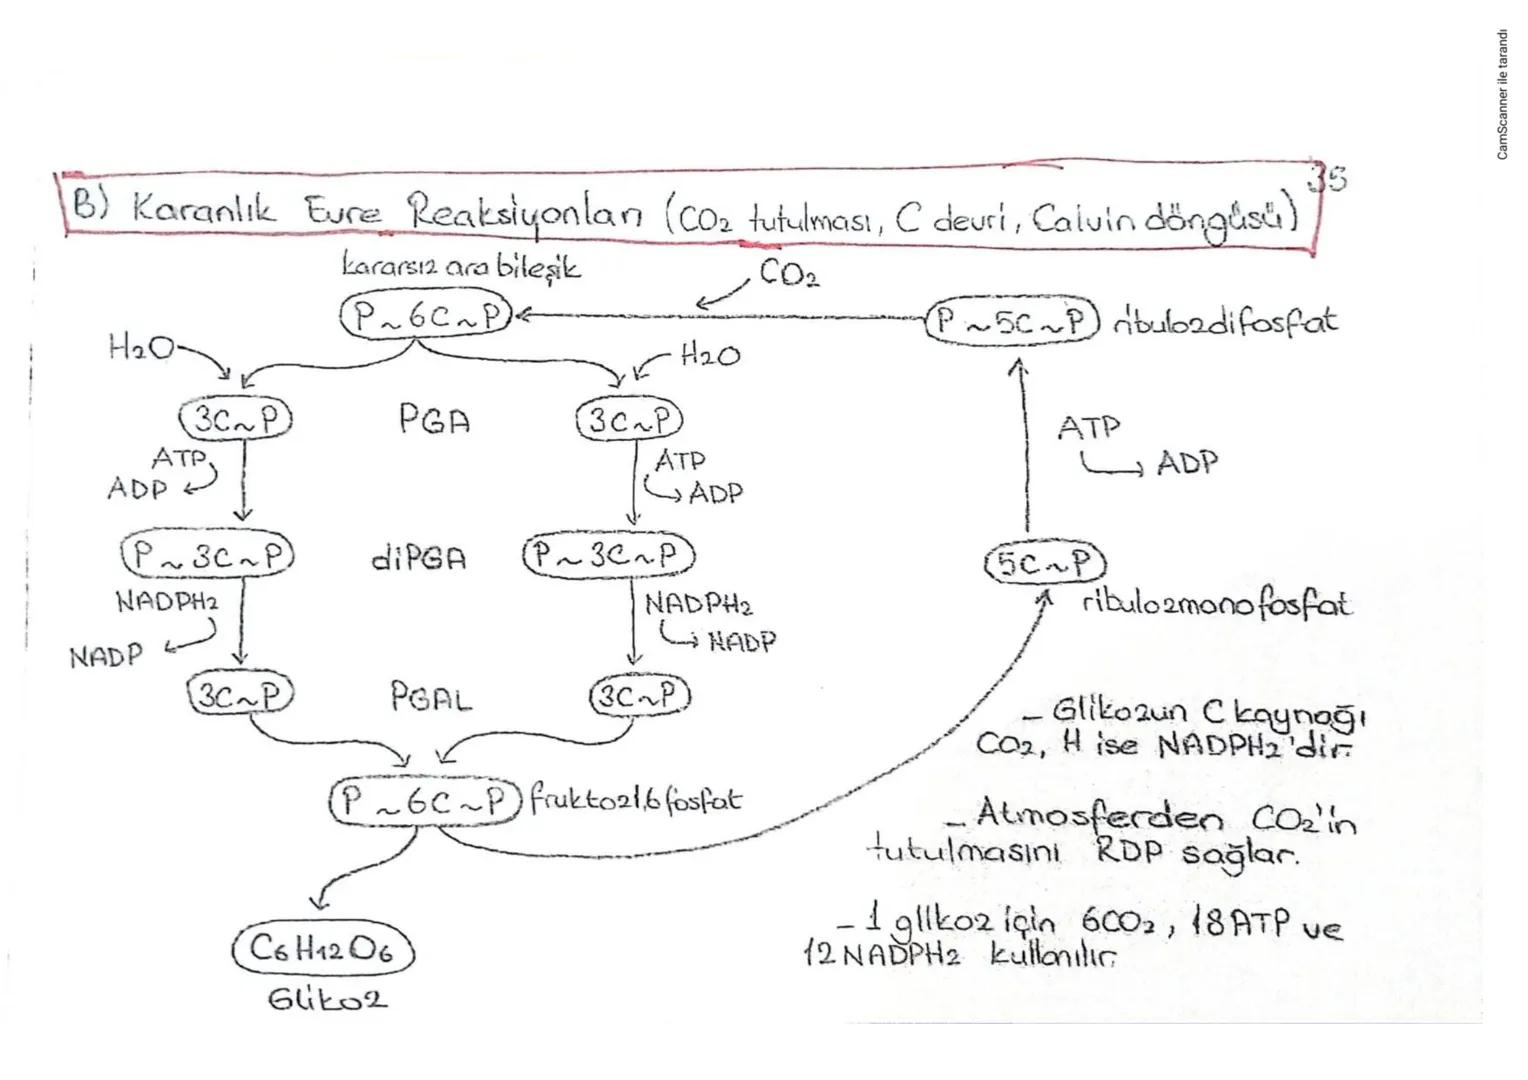 CamScanner ile tarandı
35
B) Karanlık Evre Reaksiyonları (CO₂ tutulması, C devri, Calvin döngüsü)
kararsız ara bileşik
CO₂
P~6C~P
P~5C~P ribulozdifosfat
H₂O
H₂O
3C~P PGA 3C~P
ATP ATP ATP
ADP ADP ADP
P~3C~P diPGA P~3C~P
5C~P
NADPH₂ NADPH₂ ribulozmonofosfat
NADP NADP
3C~P PGAL 3C~P
- Glikozun C kaynağı
CO₂, H ise NADPH₂'dir.
P~6C~P fruktoz1,6fosfat
- Atmosferden CO₂'in
tutulmasını RDP sağlar.
- 1 glikoz için 6CO₂, 18ATP ve
12NADPH₂ kullanılır.
C₆H₁₂O₆
Glikoz